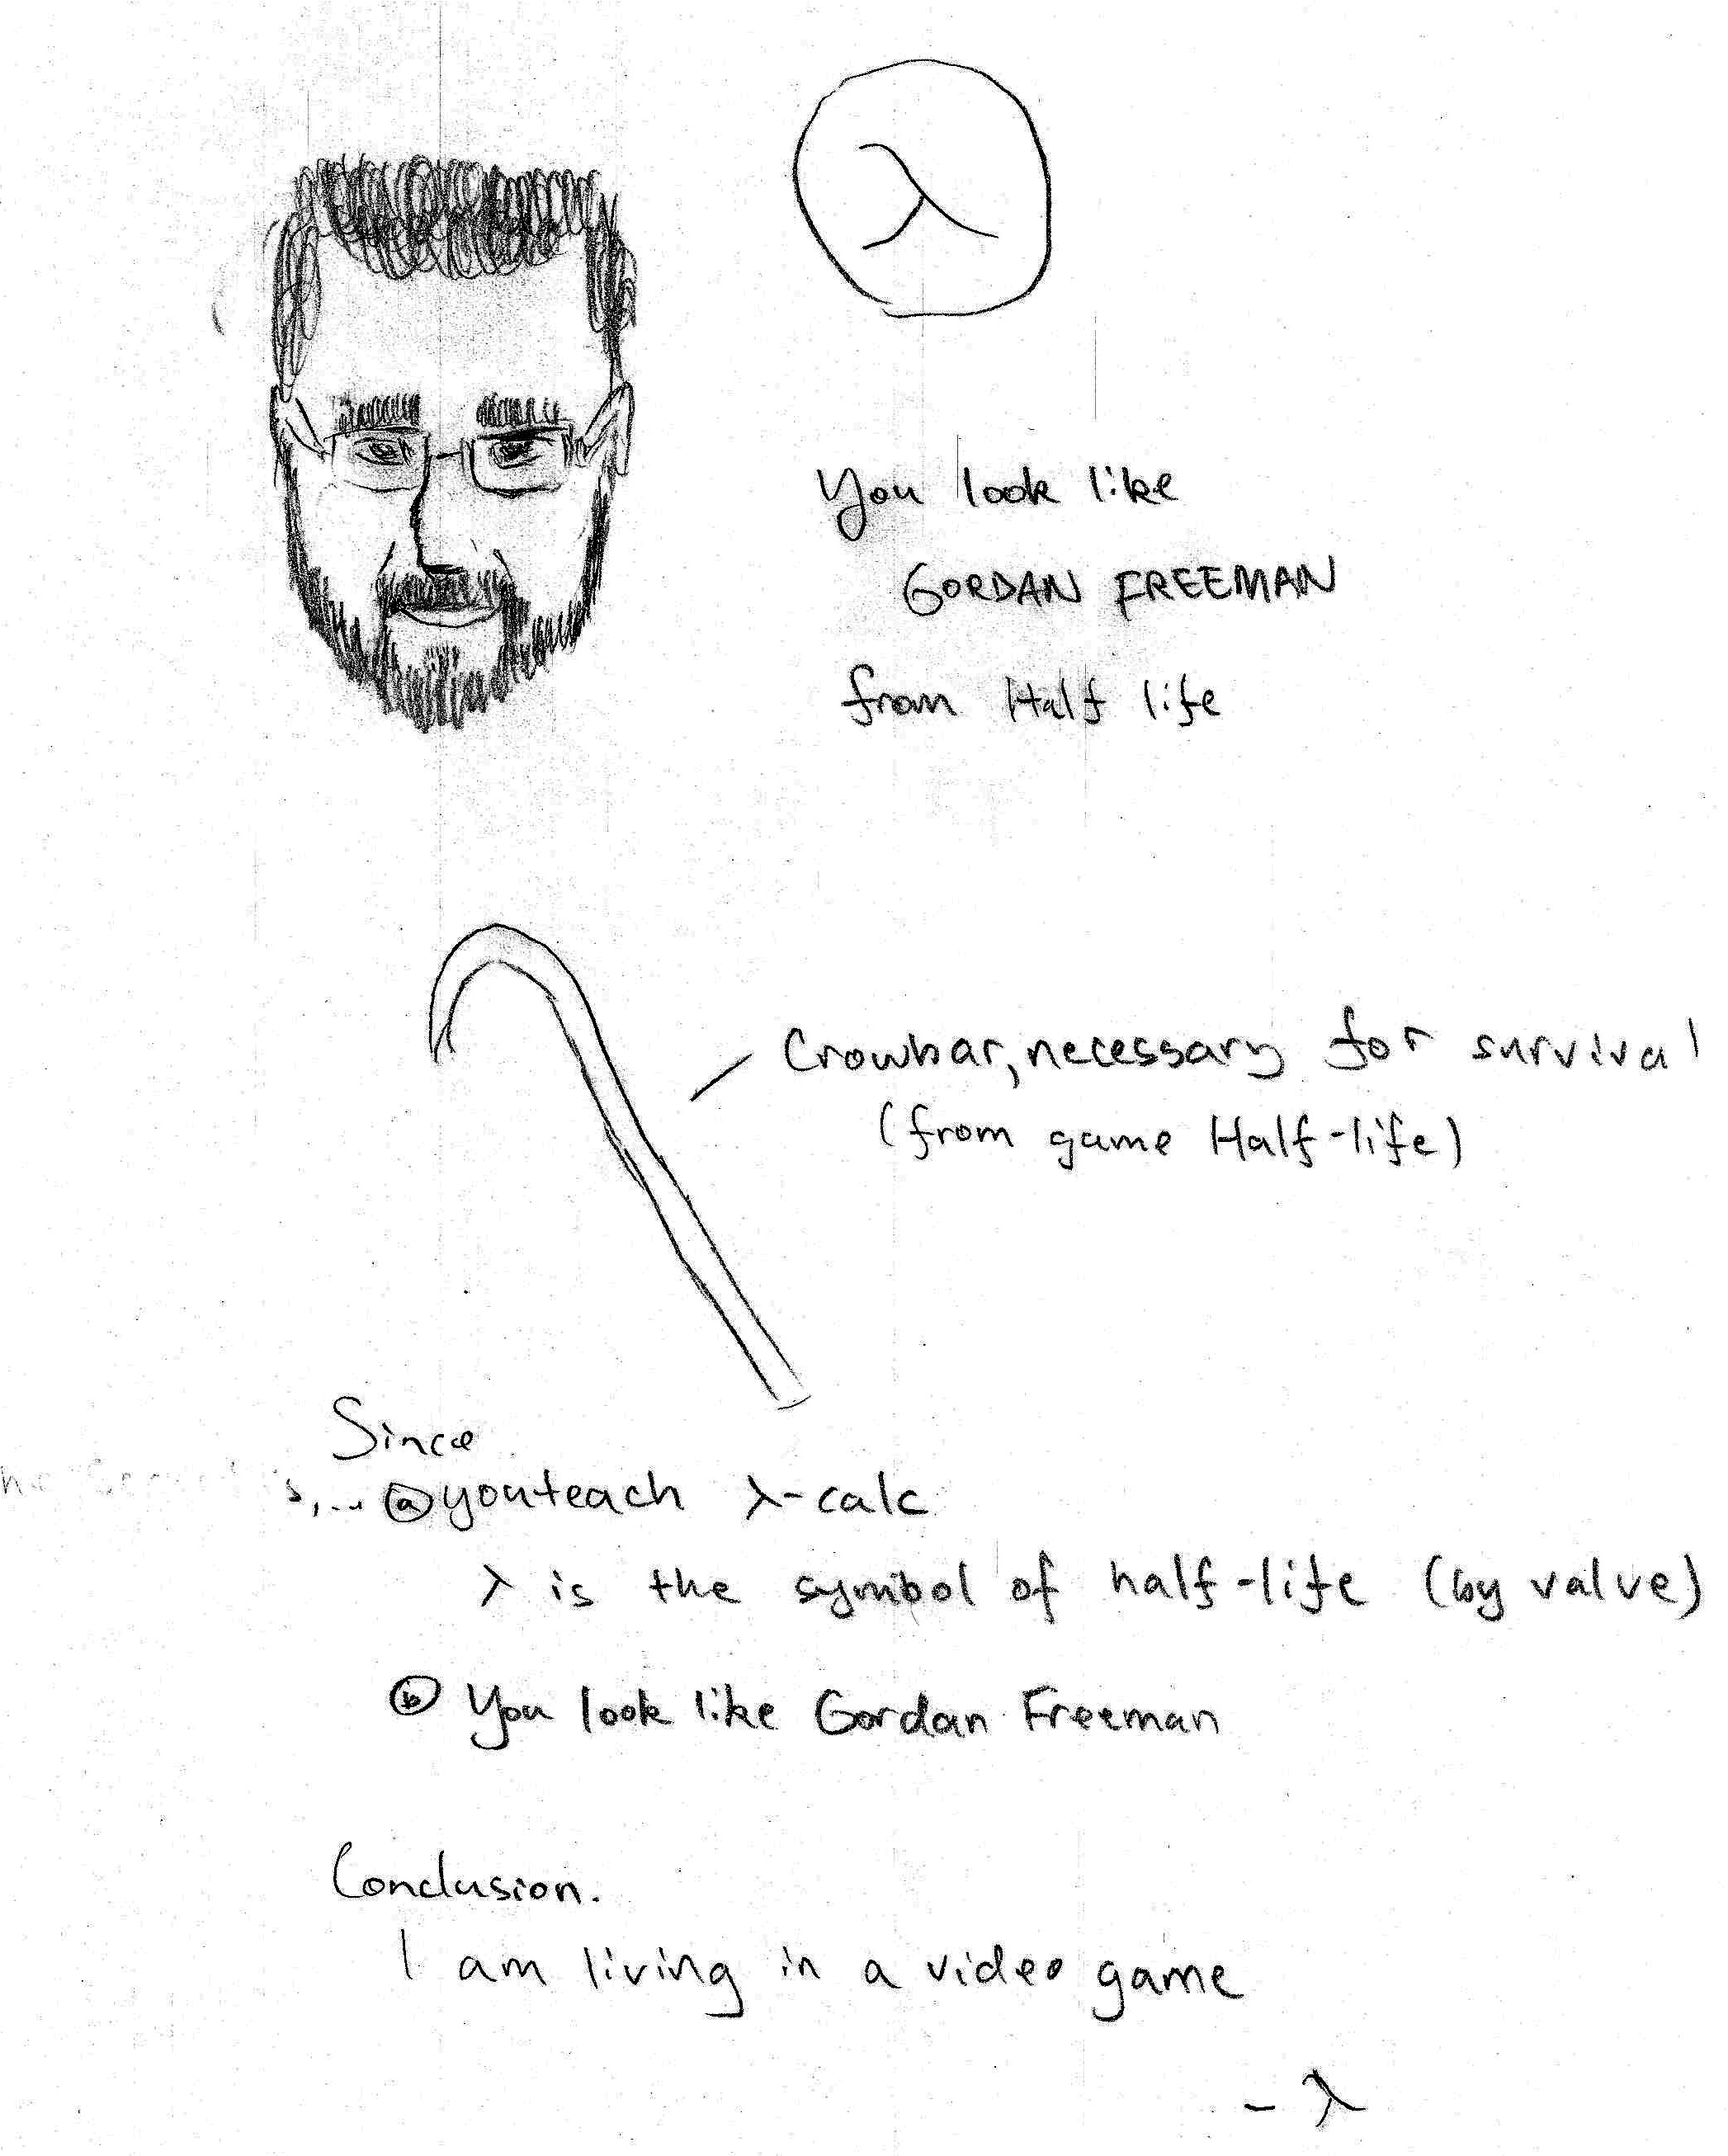 λ
You look like
GORDAN FREEMAN
from Half life
Crowbar, necessary for survival
(from game Half-life)
Since
ⓐ you teach λ-calc
λ is the symbol of half-life (by valve)
ⓑ You look like Gordan Freeman
Conclusion.
I am living in a video game
- λ